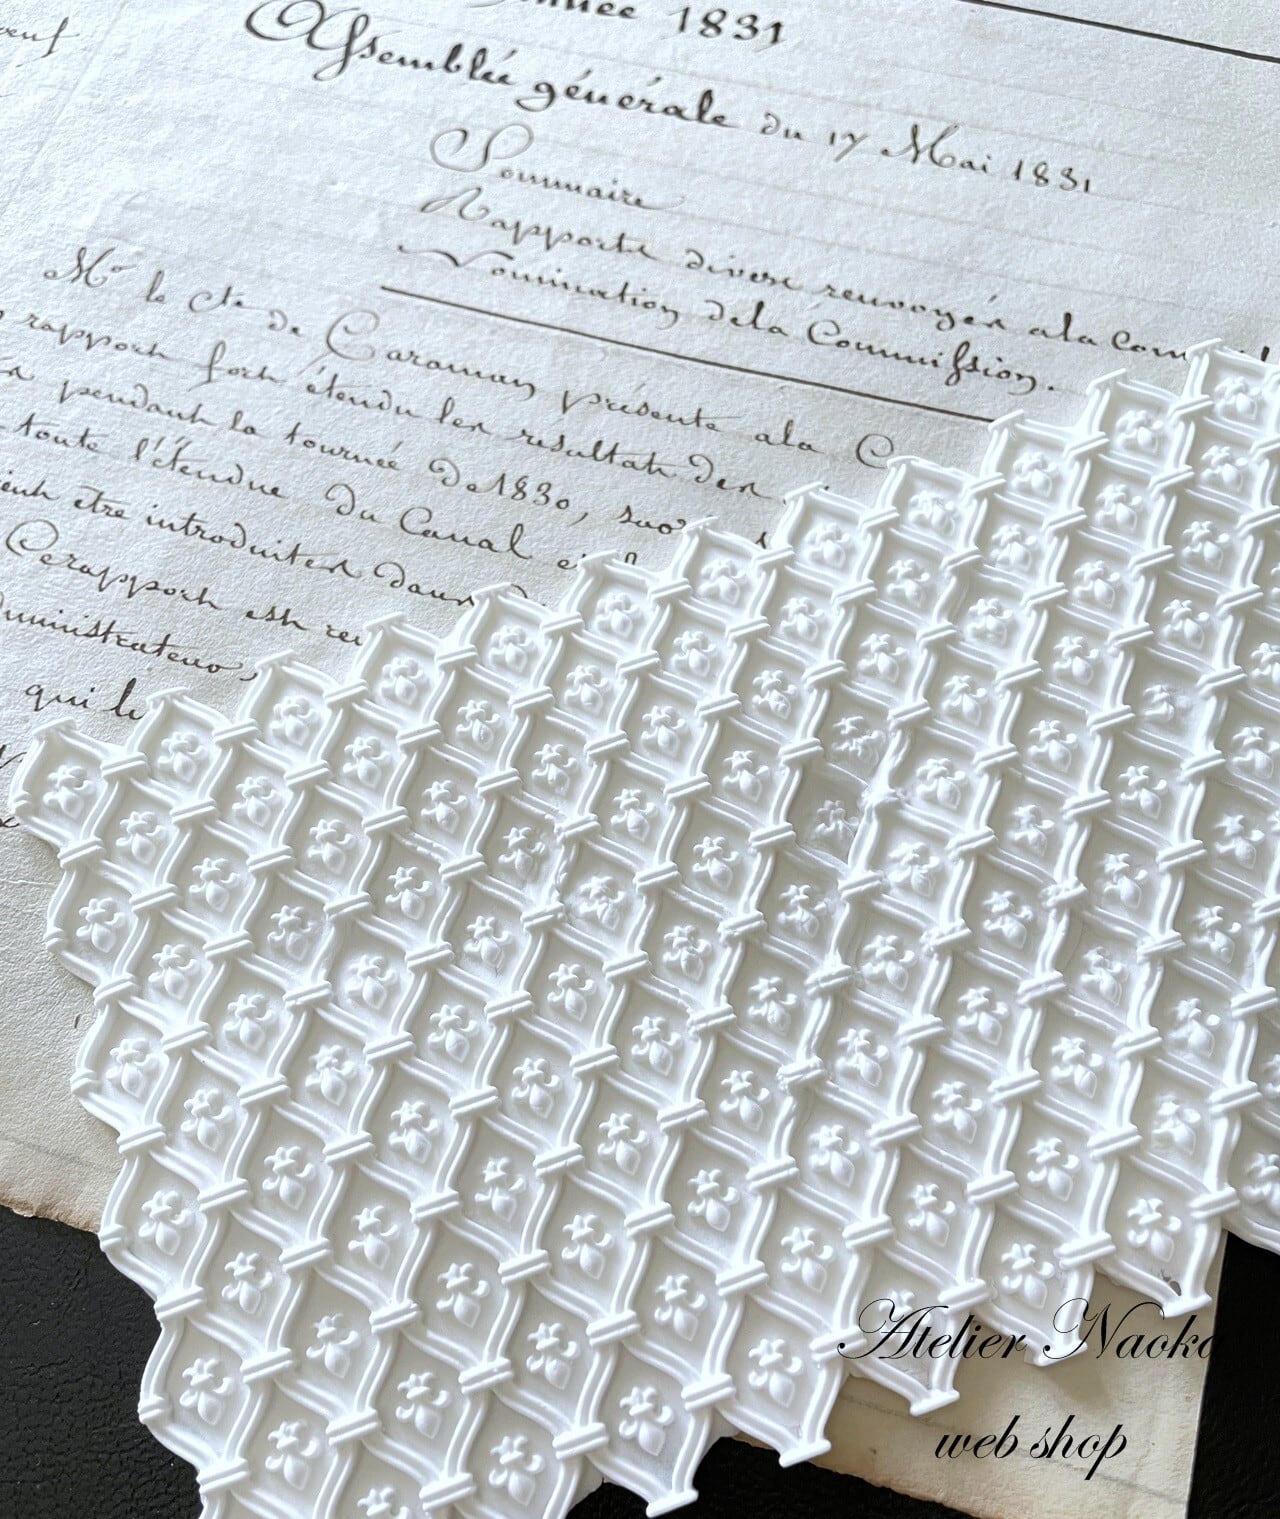 née 1831
Assemblée générale du 17 Mai 1831
Sommaire
Rapports divers renvoyés a la Com
Nomination de la Commission.
Mr le Cte de Caraman présente a la C
rapport fort étendu les resultats des
pendant la tournée de 1830, sur
toute l'étendue du Canal et
être introduites dans
Ce rapport est ren
dministrateur,
qui le
Atelier Naoka
web shop